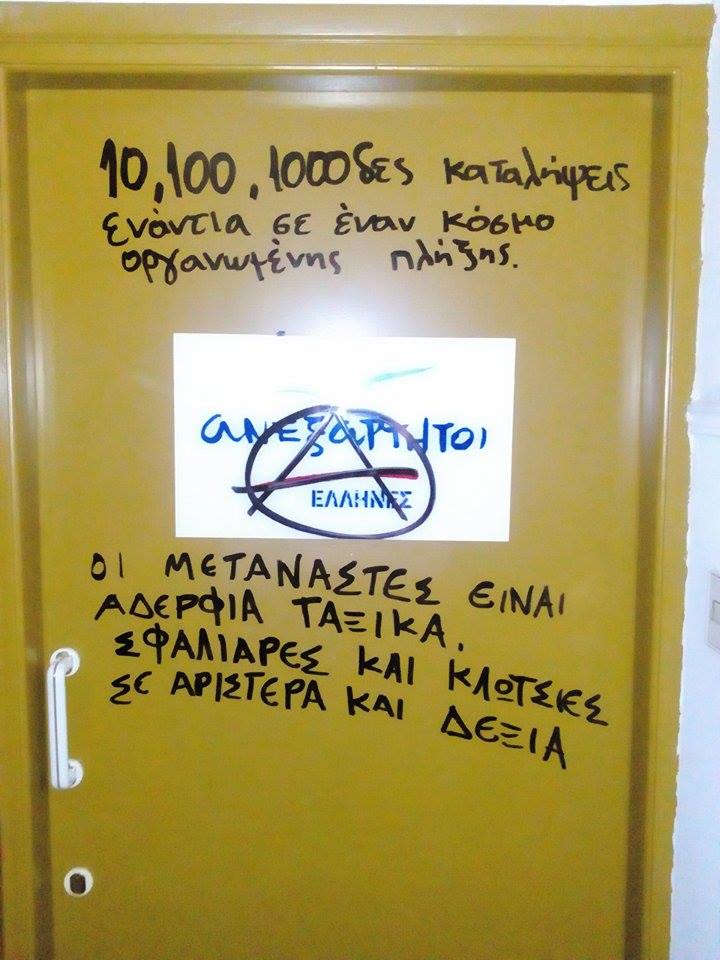 10,100,1000δες καταλήψεις
ενάντια σε έναν κόσμο
οργανωμένης πλήξης.
ανεξάρτητοι
ΕΛΛΗΝΕΣ
ΟΙ ΜΕΤΑΝΑΣΤΕΣ ΕΙΝΑΙ
ΑΔΕΡΦΙΑ ΤΑΞΙΚΑ.
ΣΦΑΛΙΑΡΕΣ ΚΑΙ ΚΛΩΤΣΙΕΣ
ΣΕ ΑΡΙΣΤΕΡΑ ΚΑΙ ΔΕΞΙΑ